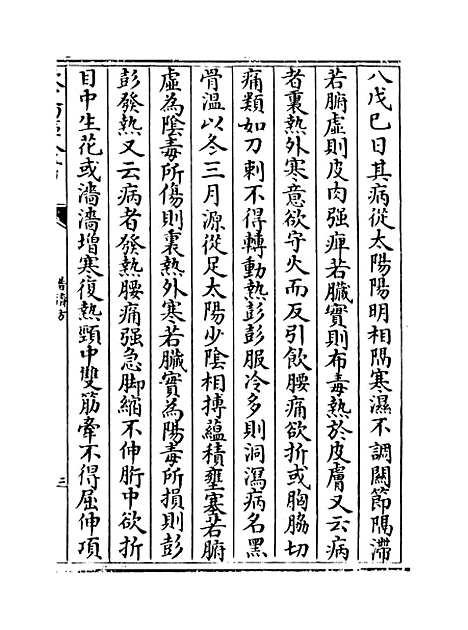 八戊巳日其病從太陽陽明相隔寒濕不調關節隔滯
若腑虛則皮肉强痺若臟實則布毒熱於皮膚又云病
者裏熱外寒意欲守火而反引飲腰痛欲折或胸脇切
痛類如刀刺不得轉動熱彭彭服冷多則洞瀉病名黑
骨溫以冬三月源從足太陽少陰相搏蘊積壅塞若腑
虛為陰毒所傷則裏熱外寒若臟實為陽毒所損則彭
彭發熱又云病者發熱腰痛强急脚縮不伸胻中欲折
目中生花或濇濇增寒復熱頸中雙筋牽不得屈伸項
普濟方
三